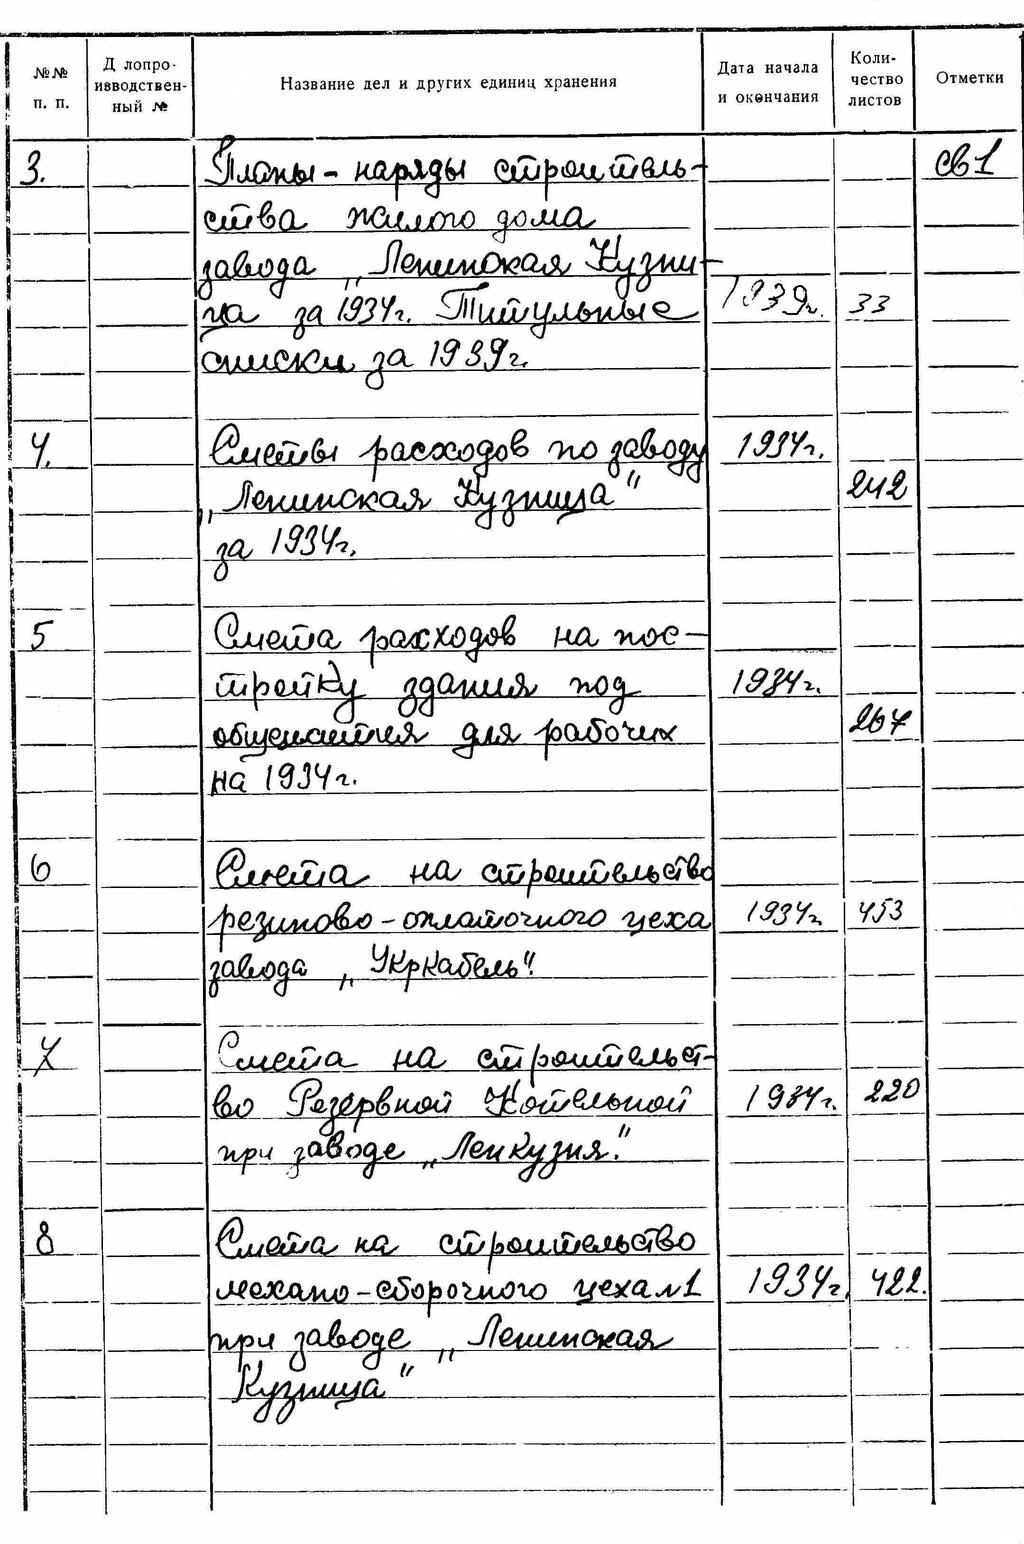 №№ п. п. Д лопро-ивводствен-ный № Название дел и других единиц хранения Дата начала и окончания Коли-чество листов Отметки
3. Планы - наряды строитель- св 1
ства жилого дома
завода „Ленинская Кузни-
ца за 1934г. Титульные 1939г. 33
списки за 1939г.
4. Сметы расходов по заводу 1934г.
„Ленинская Кузница" 242
за 1934г.
5 Смета расходов на пос-
тройку здания под 1934г.
общежития для рабочих 267
на 1934г.
6 Смета на строительство
резиново-оплаточного цеха 1934г. 453
завода „Укркабель".
7 Смета на строительст-
во Резервной Котельной 1934г. 220
при заводе „Ленкузня."
8 Смета на строительство
механо-сборочного цеха №1 1934г. 422.
при заводе „Ленинская
Кузница"